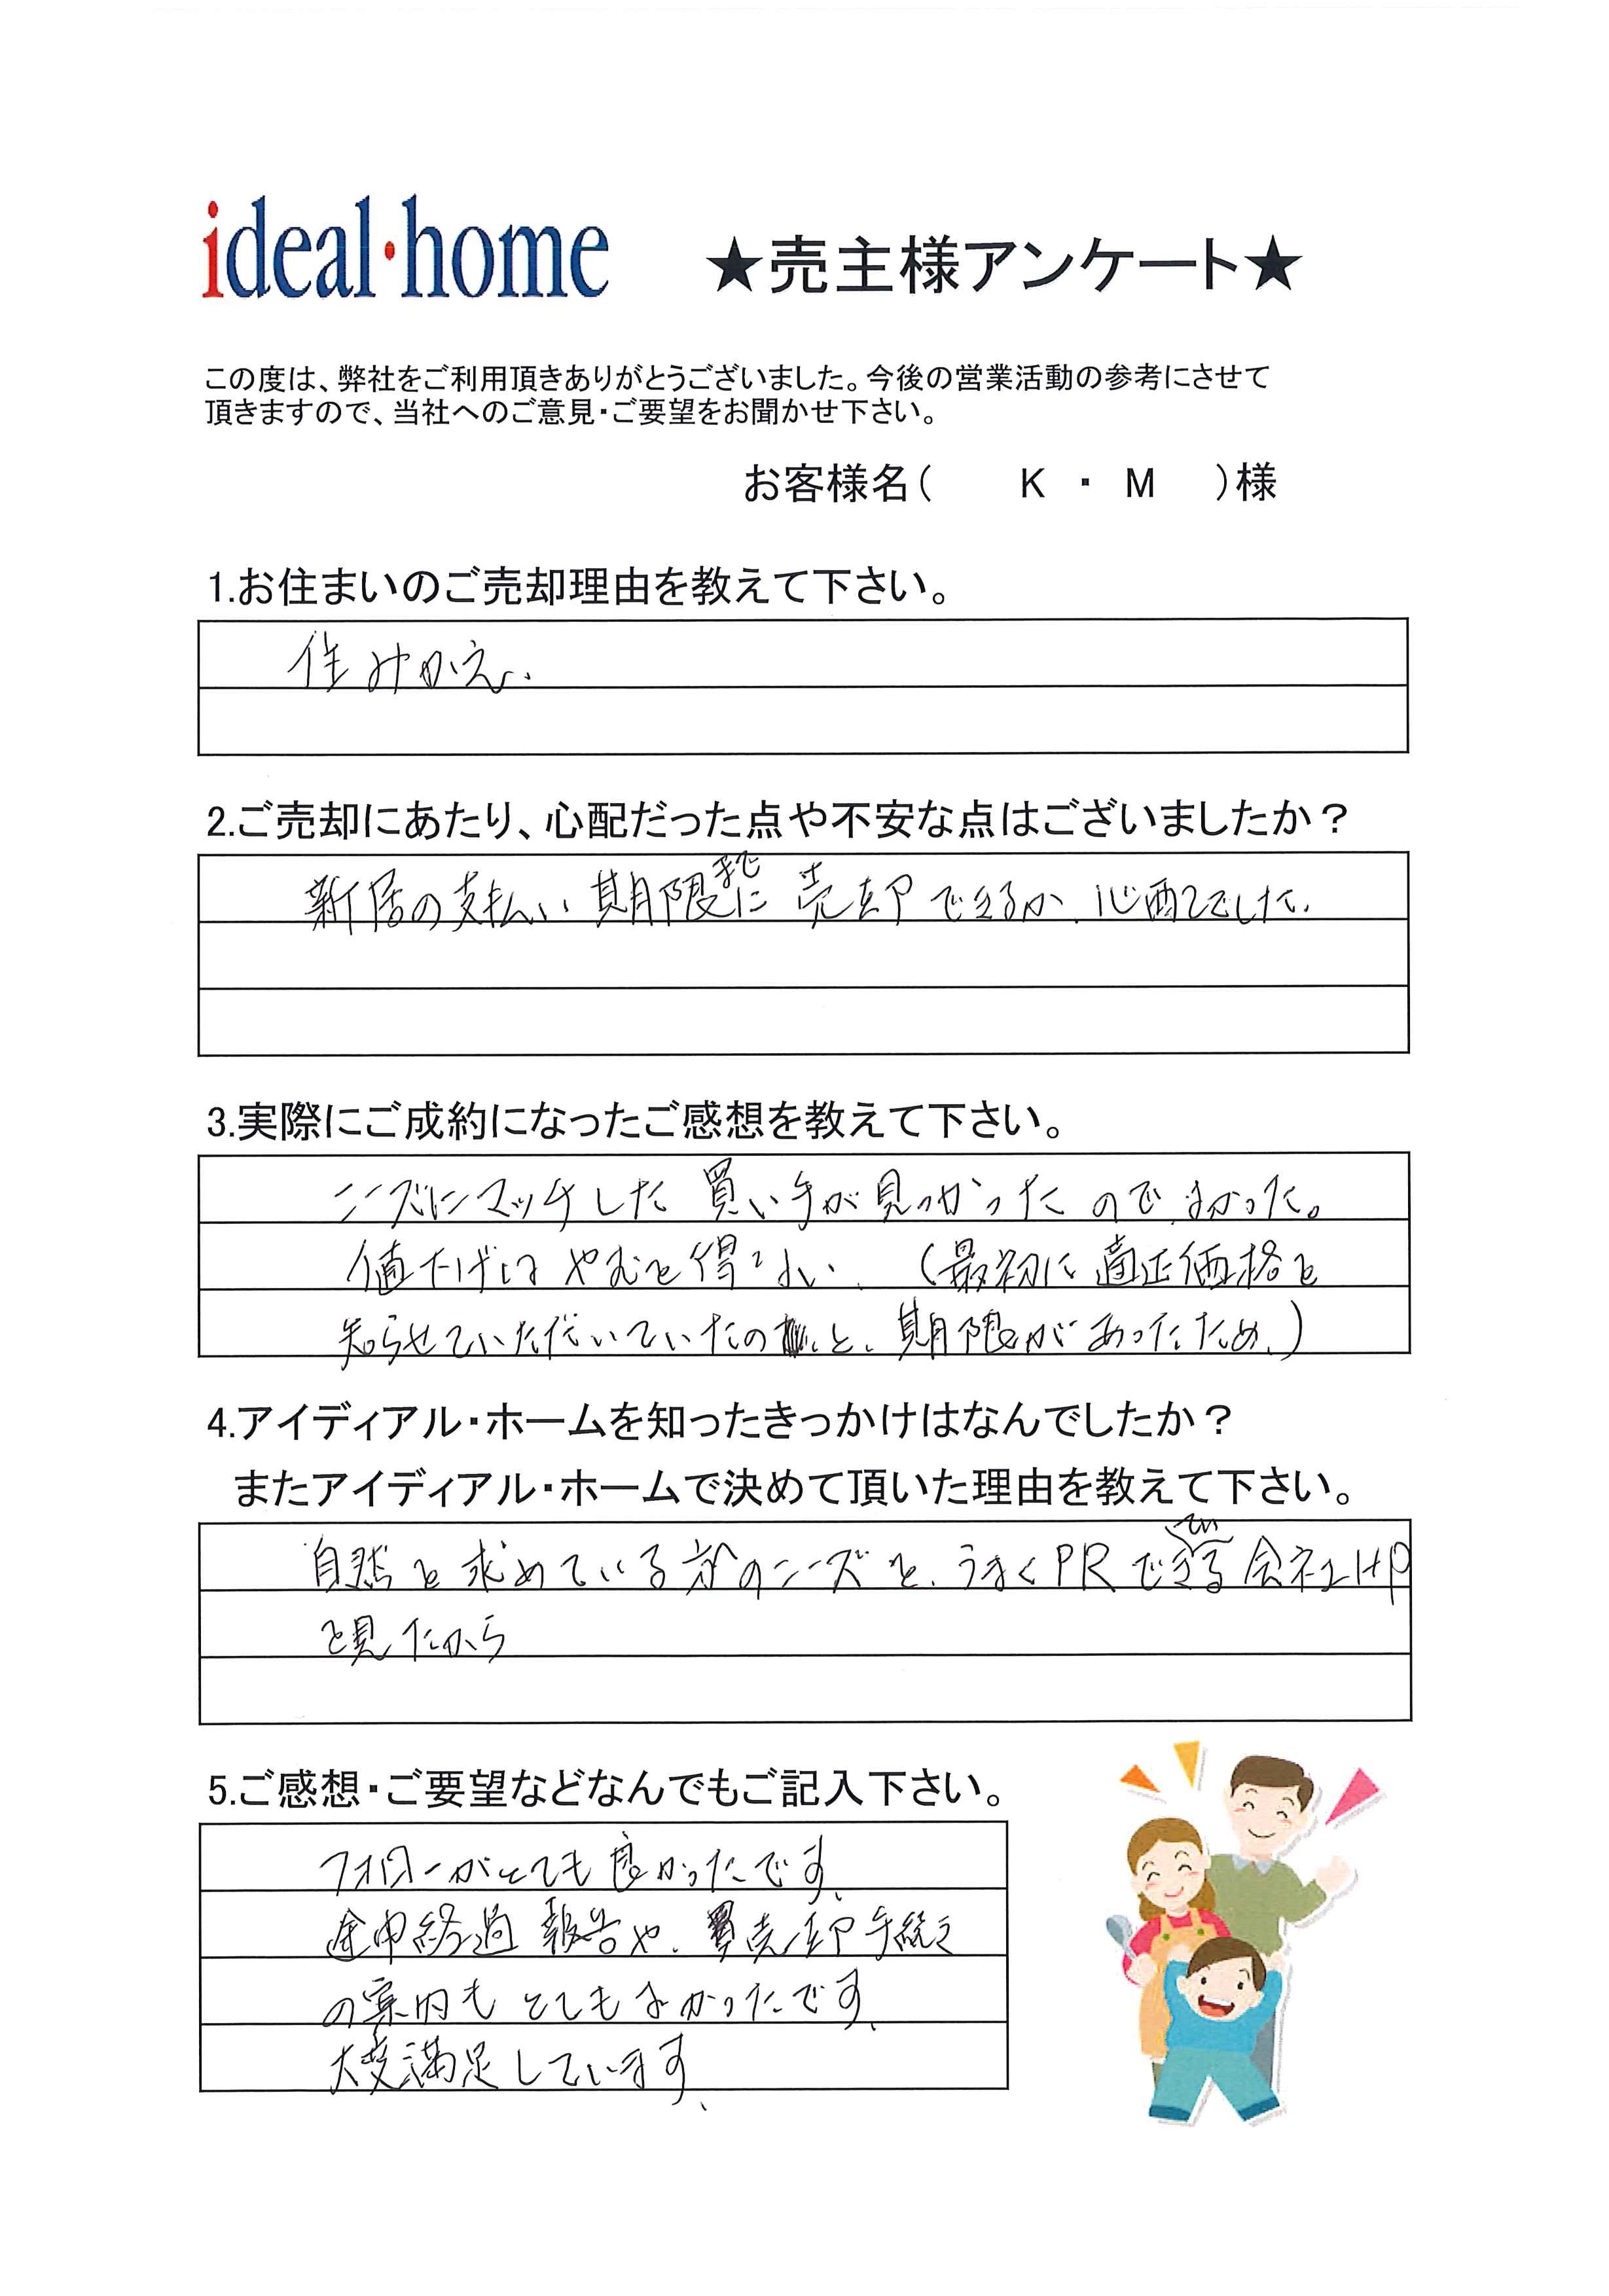 ideal·home
★売主様アンケート★
この度は、弊社をご利用頂きありがとうございました。今後の営業活動の参考にさせて
頂きますので、当社へのご意見・ご要望をお聞かせ下さい。
お客様名( K ・ M )様
1.お住まいのご売却理由を教えて下さい。
住みかえ、
2.ご売却にあたり、心配だった点や不安な点はございましたか？
新居の支払い期限までに売却できるか心配でした。
3.実際にご成約になったご感想を教えて下さい。
ニーズにマッチした買い手が見つかったのでよかった。
値下げはやむを得ない。(最初に適正価格を
知らせていただいていたのと、期限があったため。)
4.アイディアル・ホームを知ったきっかけはなんでしたか？
またアイディアル・ホームで決めて頂いた理由を教えて下さい。
自然を求めている のニーズを、うまくPRできている会社HP
を見たから
5.ご感想・ご要望などなんでもご記入下さい。
フォローがとても良かったです。
途中経過報告や、売却手続き
の案内もとてもよかったです。
大変満足しています。